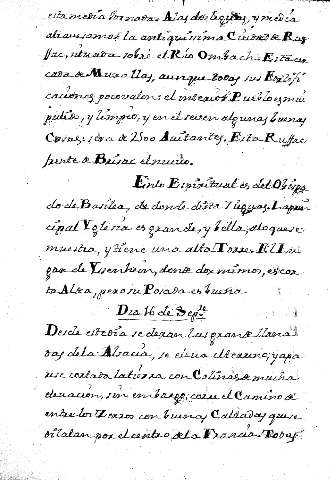 esta media Jornada. A las dos leguas, y media
atravesamos la antiquissima Ciudad de Ruf-
fac, situada sobre el Rio Ombach. Esta cer-
cada de Murallas, aunque todas sus Edifi-
caciones poco valen: el interior Pueblo es mui
pulido, y limpio, y en el se ven algunas buenas
Casas: sera de 2500 Avitantes. Esta Ruffac
frente de Brisac el nuevo.
En lo Espiritual es del Obispa-
do de Basilea, de donde dista leguas. La prin-
cipal Yglesia es grande, y bella, a lo que se
muestra, y tiene una alta Torre. El Lu-
gar de Yssenheim, donde dormimos, es cor-
to Alza, pero su Posada es buena.
Dia 16 de Sep.re
Desde este dia se dejan las grandes llanu-
ras de la Alsacia, se eleva el terreno, y apa-
rece cortada la tierra con Colinas de mucha
elevacion, sin embargo, corre el Camino
entre los Zerros con buenas Calzadas que se
dilatan por el centro de la Francia. Todas